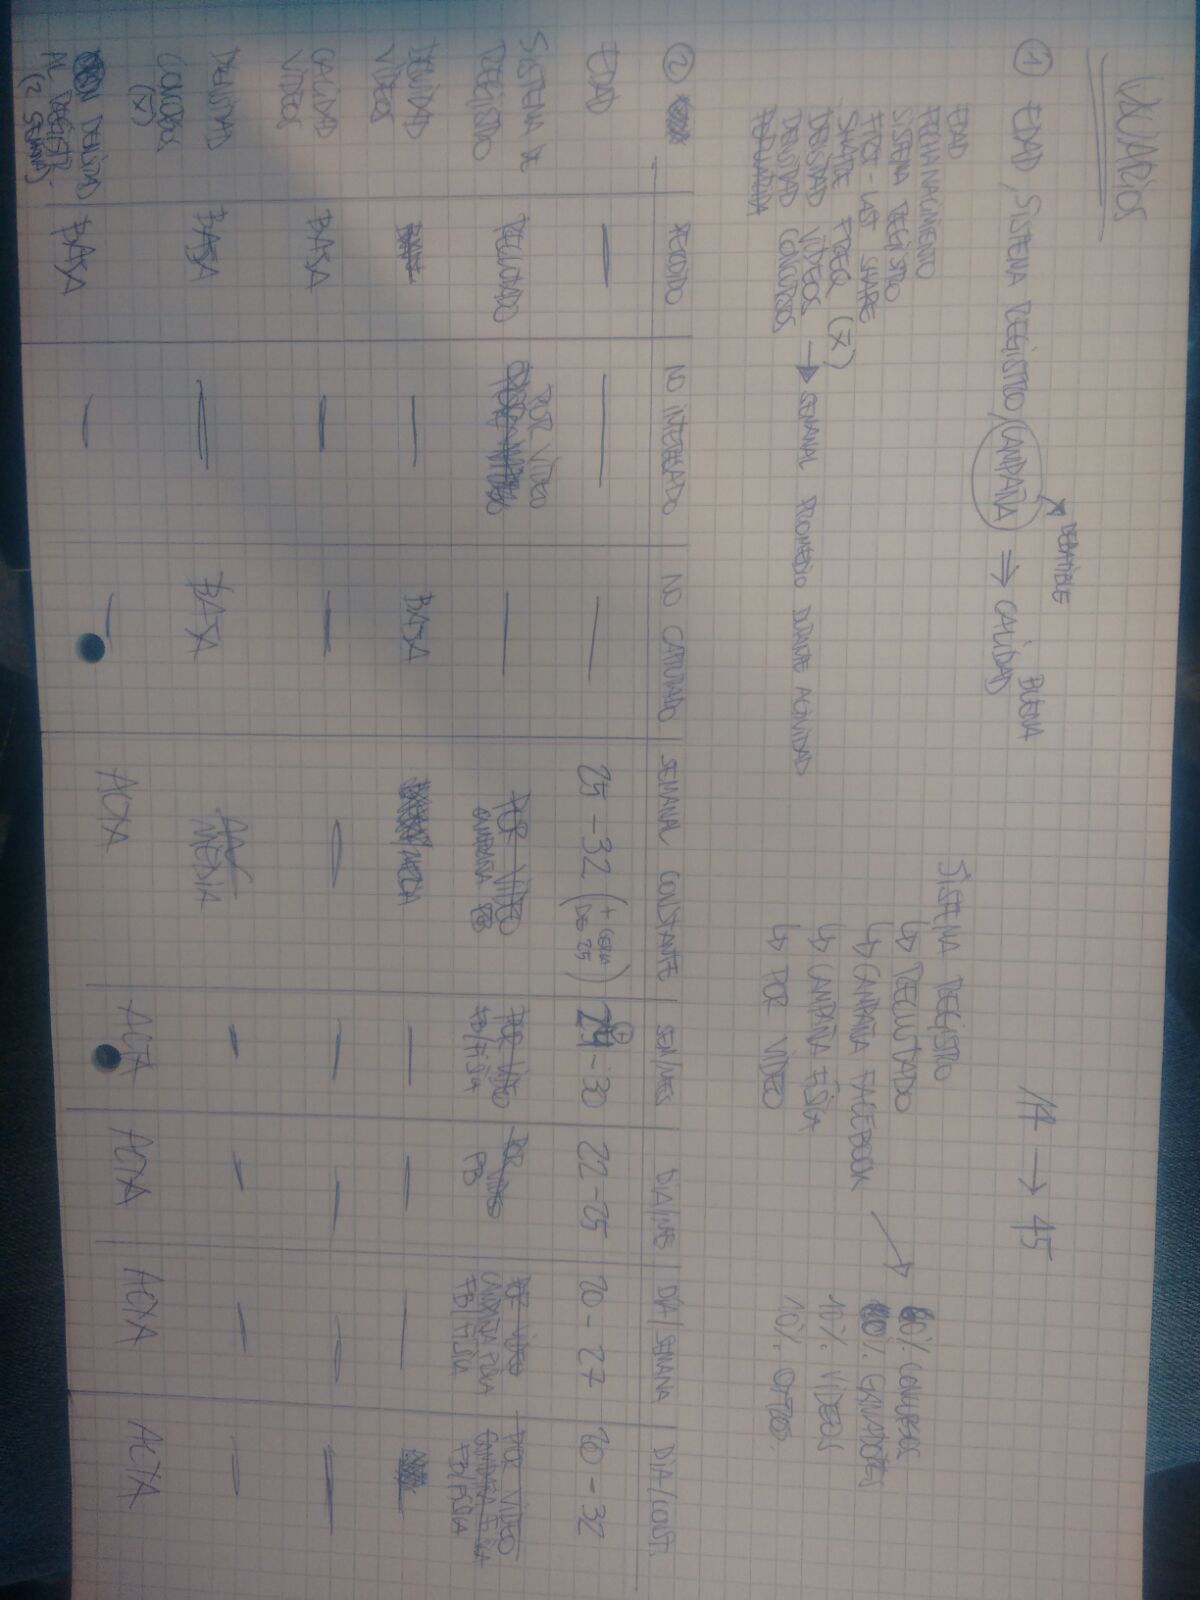 USUARIOS
DEBATIBLE
① EDAD, SISTEMA REGISTRO, CAMPAÑA ⇒ CALIDAD BUENA
14 → 45
EDAD
FECHA NACIMIENTO
SISTEMA REGISTRO
FIRST-LAST SHARE
SHARE FREQ (X̄)
DENSIDAD VIDEOS → SEMANAL PROMEDIO DURANTE ACTIVIDAD
DENSIDAD CONCURSOS
SISTEMA REGISTRO
↳ RECLUTADO
↳ CAMPAÑA FACEBOOK
↳ CAMPAÑA FÍSICA
↳ POR VIDEO
CONCURSOS
GANADORES
10% VIDEOS
10% OTROS
② PERDIDO NO INTERESADO NO CAPTURADO SEMANAL CONSTANTE SEM/MES DIA/MES DÍA/SEMANA DIA/CONST.
EDAD — — — 25 - 32 (+ CERCA DE 25) 24 - 30 22 - 25 20 - 27 20 - 32
SISTEMA DE REGISTRO RECLUTADO POR VIDEO — POR VIDEO POR VIDEO POR VIDEO POR VIDEO POR VIDEO
CAMPAÑA FB FB/FÍSICA FB CAMPAÑA FB/FÍSICA CAMPAÑA FÍSICA FB/FÍSICA
DENSIDAD VIDEOS — BAJA — — —
CALIDAD VIDEOS BAJA — — — — — — —
DENSIDAD (X̄) BAJA — BAJA MEDIA — — — —
DENSIDAD AL REGISTR. (2 SEMANA) BAJA — — ALTA ALTA ALTA ALTA ALTA